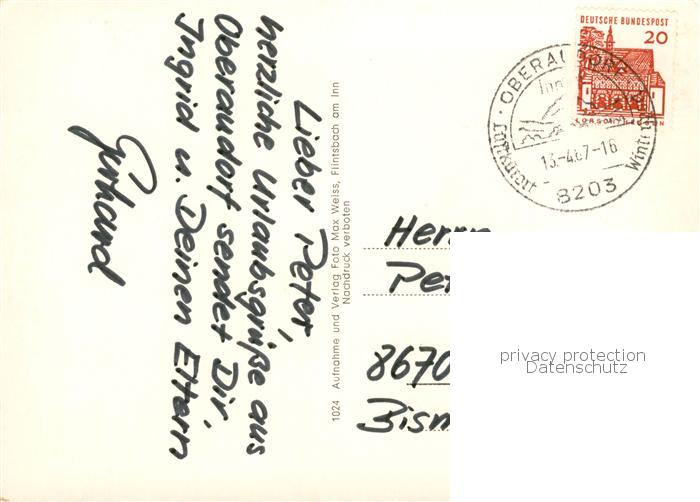 Lieber Peter,
herzliche Urlaubsgrüße aus
Oberaudorf sendet Dir,
Ingrid u. Deinen Eltern
Gerhard
1024 Aufnahme und Verlag Foto Max Weiss, Flintsbach am Inn
Nachdruck verboten
DEUTSCHE BUNDESPOST
20
OBERAUDORF
Inn
Luftkurort
13.-4.67-16
8203
Herrn
Pet
8670
Bism
privacy protection
Datenschutz